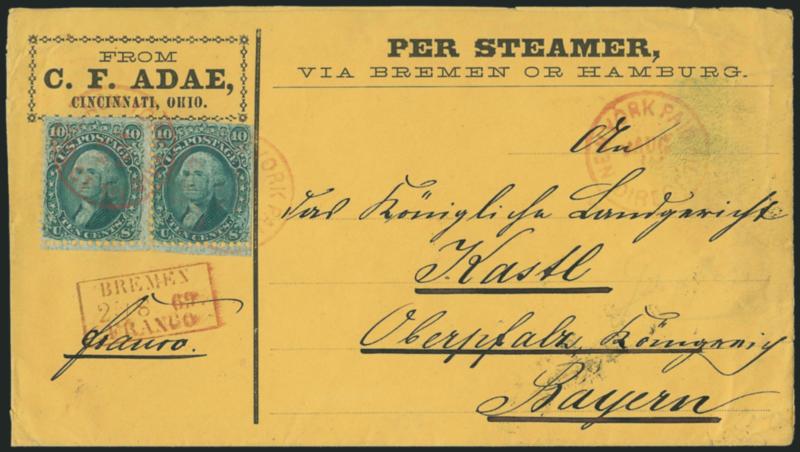 FROM
C. F. ADAE,
CINCINNATI, OHIO.
PER STEAMER,
VIA BREMEN OR HAMBURG.
10 10
U.S. POSTAGE
TEN CENTS
U S
10 10
U.S. POSTAGE
TEN CENTS
U S
YORK PAI
NEW YORK PAI
AUG
DIRE
BREMEN
2 8 69
FRANCO
franco.
An
das Königliche Landgericht
Kastl
Oberpfalz, Königreich
Bayern